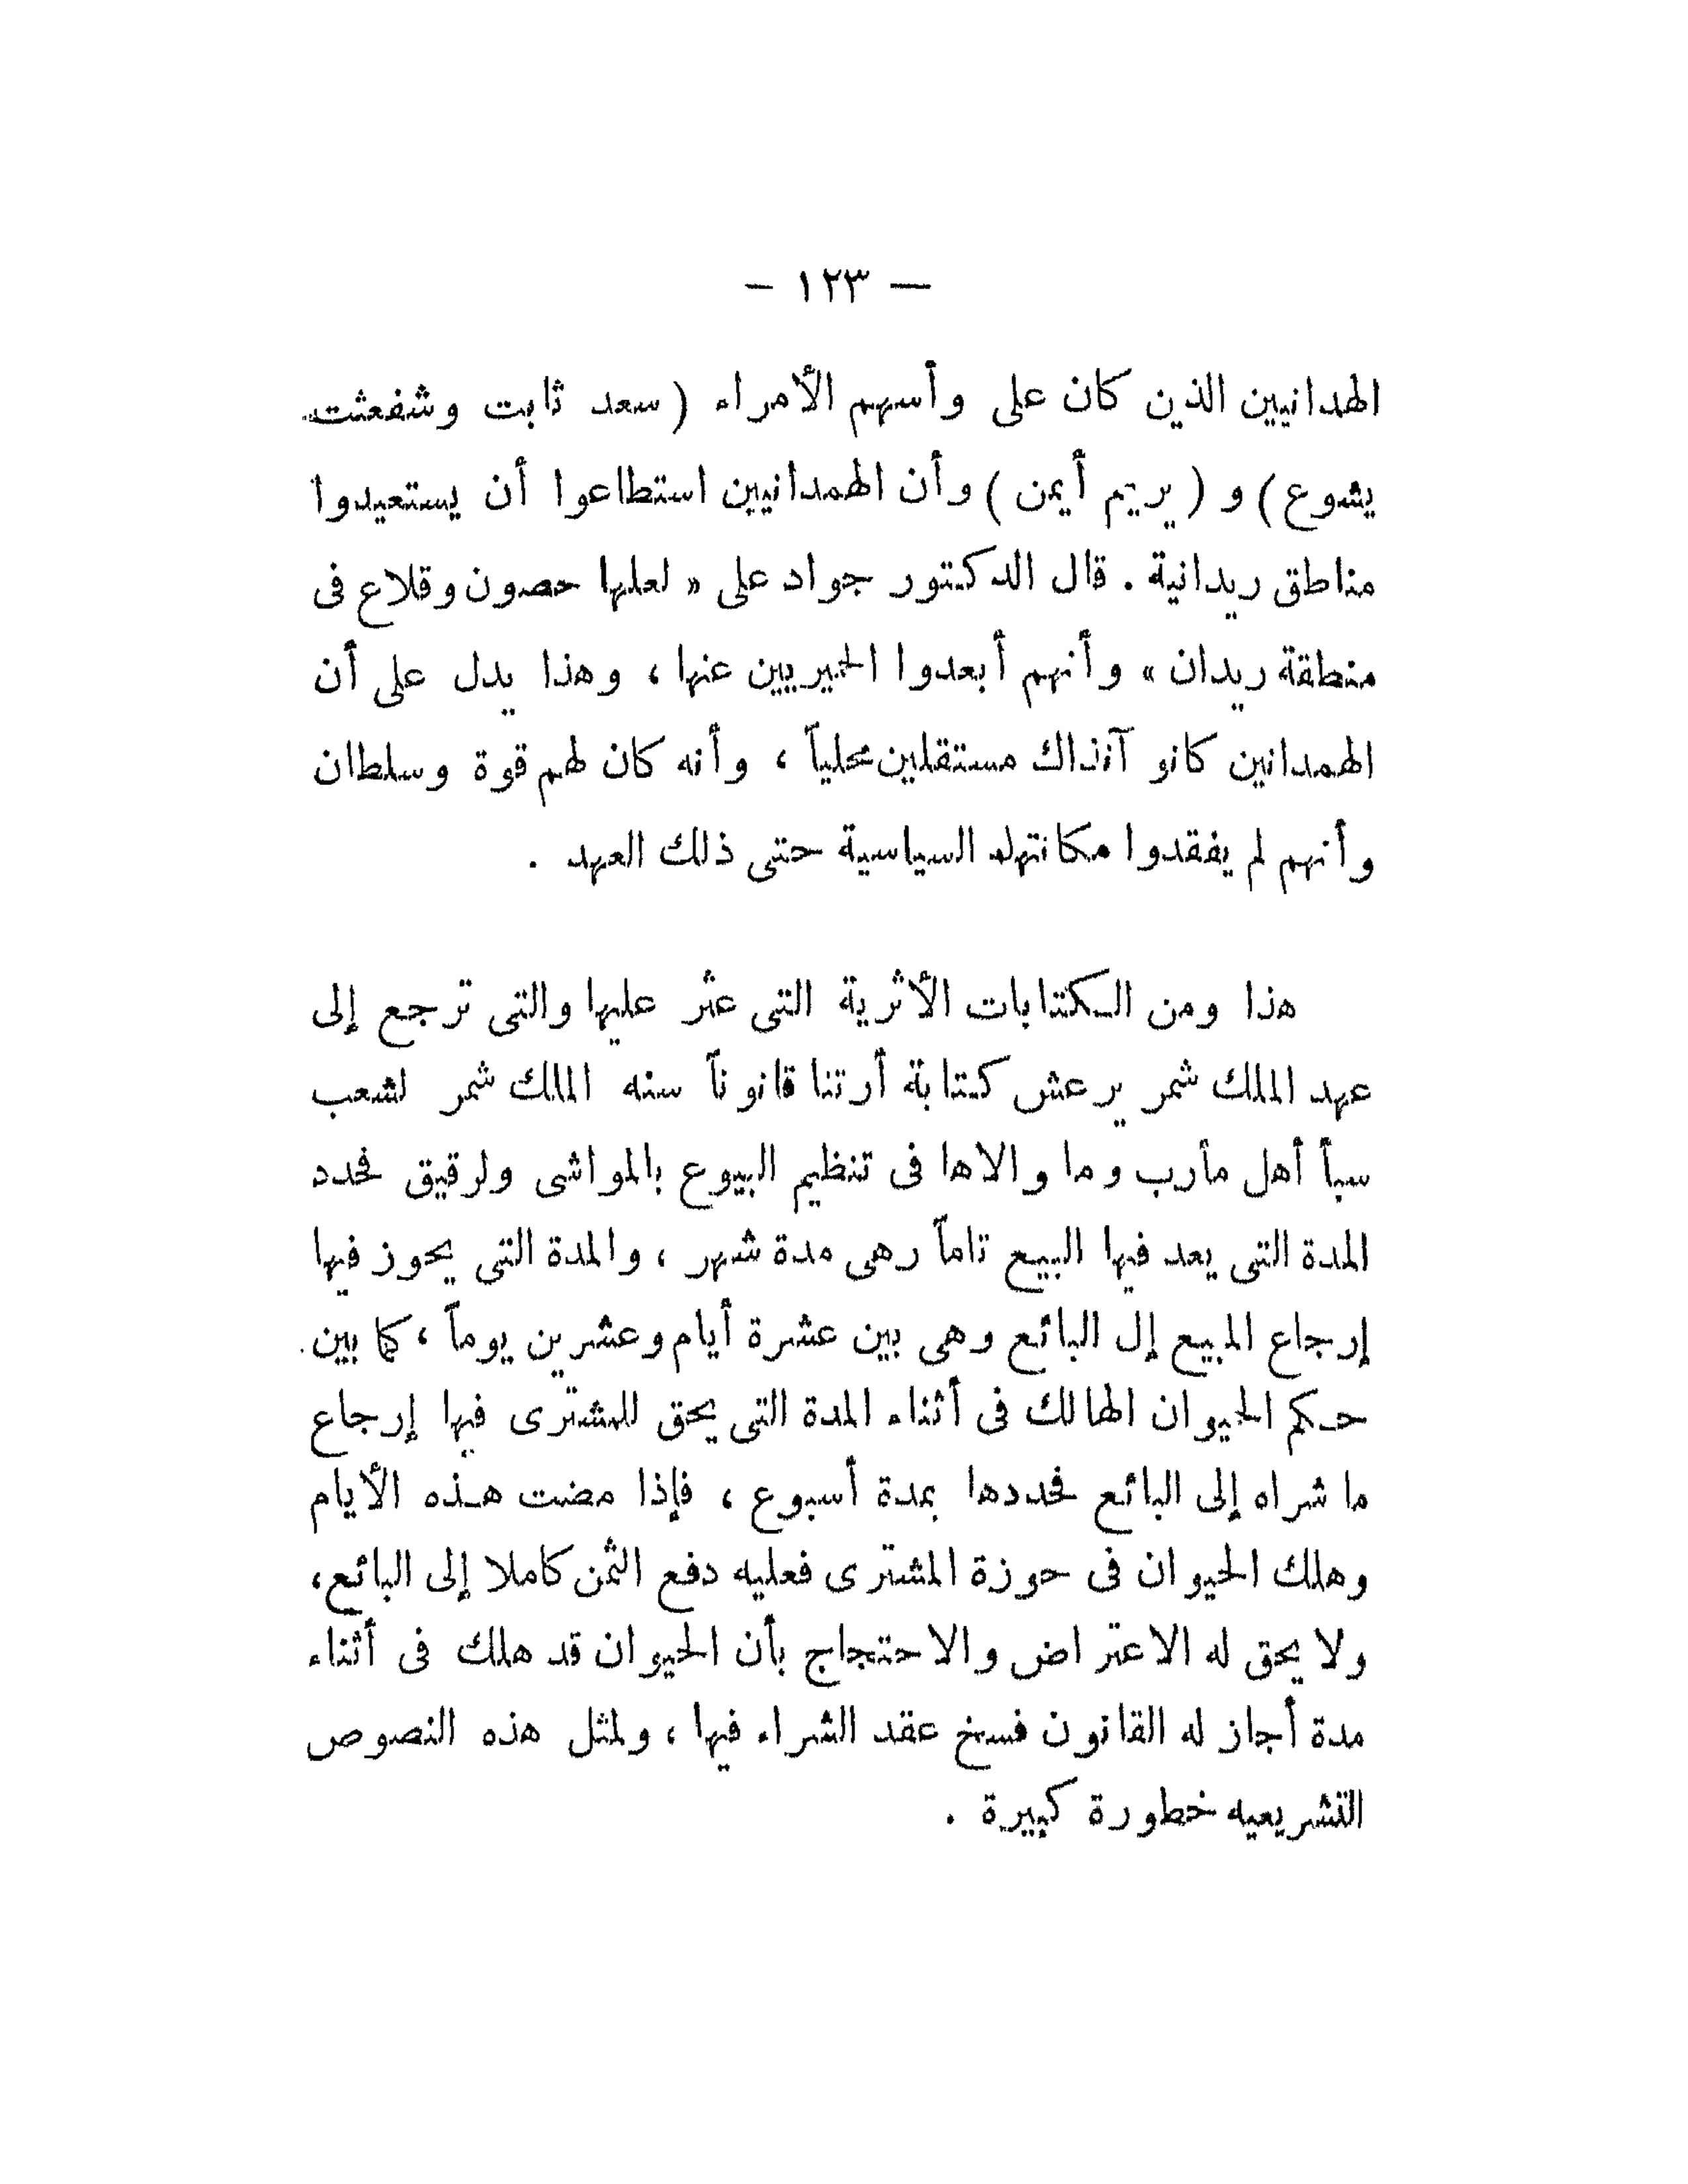 — ١٢٣ —
الهدانيين الذين كان على وأسهم الأمراء ( سعد ثابت وشفعثت
يشوع ) و ( يريم أيمن ) وأن الهمدانيين استطاعوا أن يستعيدوا
مناطق ريدانية . قال الدكتور جواد على « لعلها حصون وقلاع فى
منطقة ريدان » وأنهم أبعدوا الحميريين عنها ، وهذا يدل على أن
الهمدانين كانو آنذاك مستقلين محلياً ، وأنه كان لهم قوة وسلطان
وأنهم لم يفقدوا مكانتهم السياسية حتى ذلك العهد .
هذا ومن الكتابات الأثرية التى عثر عليها والتى ترجع إلى
عهد الملك شمر يرعش كتابة أرتنا قانوناً سنه الملك شمر لشعب
سبأ أهل مأرب وما والاها فى تنظيم البيوع بالمواشى ولرقيق فحدد
المدة التى يعد فيها البيع تاماً رهى مدة شهر ، والمدة التى يحوز فيها
إرجاع المبيع إل البائع وهى بين عشرة أيام وعشرين يوماً ، كما بين
حكم الحيوان الهالك فى أثناء المدة التى يحق للمشترى فيها إرجاع
ما شراه إلى البائع فحددها بمدة أسبوع ، فإذا مضت هذه الأيام
وهلك الحيوان فى حوزة المشترى فعليه دفع الثمن كاملا إلى البائع ،
ولا يحق له الاعتراض والاحتجاج بأن الحيوان قد هلك فى أثناء
مدة أجاز له القانون فسخ عقد الشراء فيها ، ولمثل هذه النصوص
التشريعيه خطورة كبيرة .